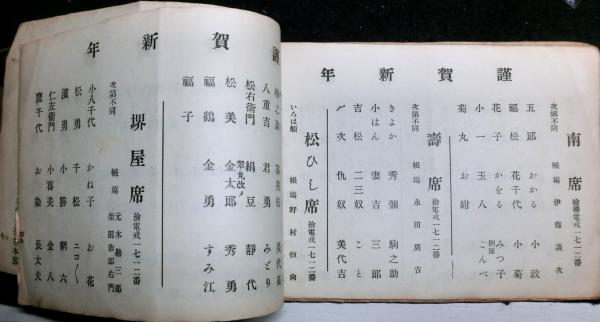 謹賀新年
南席
電戎一七一二番
次第不同
帳場 伊藤議次
五郎 おかる 小政
福松 花千代 小菊
花子 かをる みつ子
小一 玉八 ごんべ
菊丸 お紺
壽席
電戎一七一二番
次第不同
帳場 永田廣吉
きよか 秀彌 駒之助
小はん 妻吉 三郎
吉松 二三奴 こと
〆次 仇奴 美代吉
松ひし席
いろは順
帳場 野村恒
謹賀新年
八重吉 君勇 みどり
松右衛門 絹豆 静代
松美 翠丸改メ 金太郎 秀勇
福鶴 金勇 すみ江
福子
堺屋席
電戎一七一二番
次第不同
帳場 元木勘三郎
柴田市郎右門
小八千代 かね子 お花
松勇 千松 ニコ〱
濱勇 小勝 朝六
仁左衛門 小喜美 金八
鷹千代 お染 長太夫